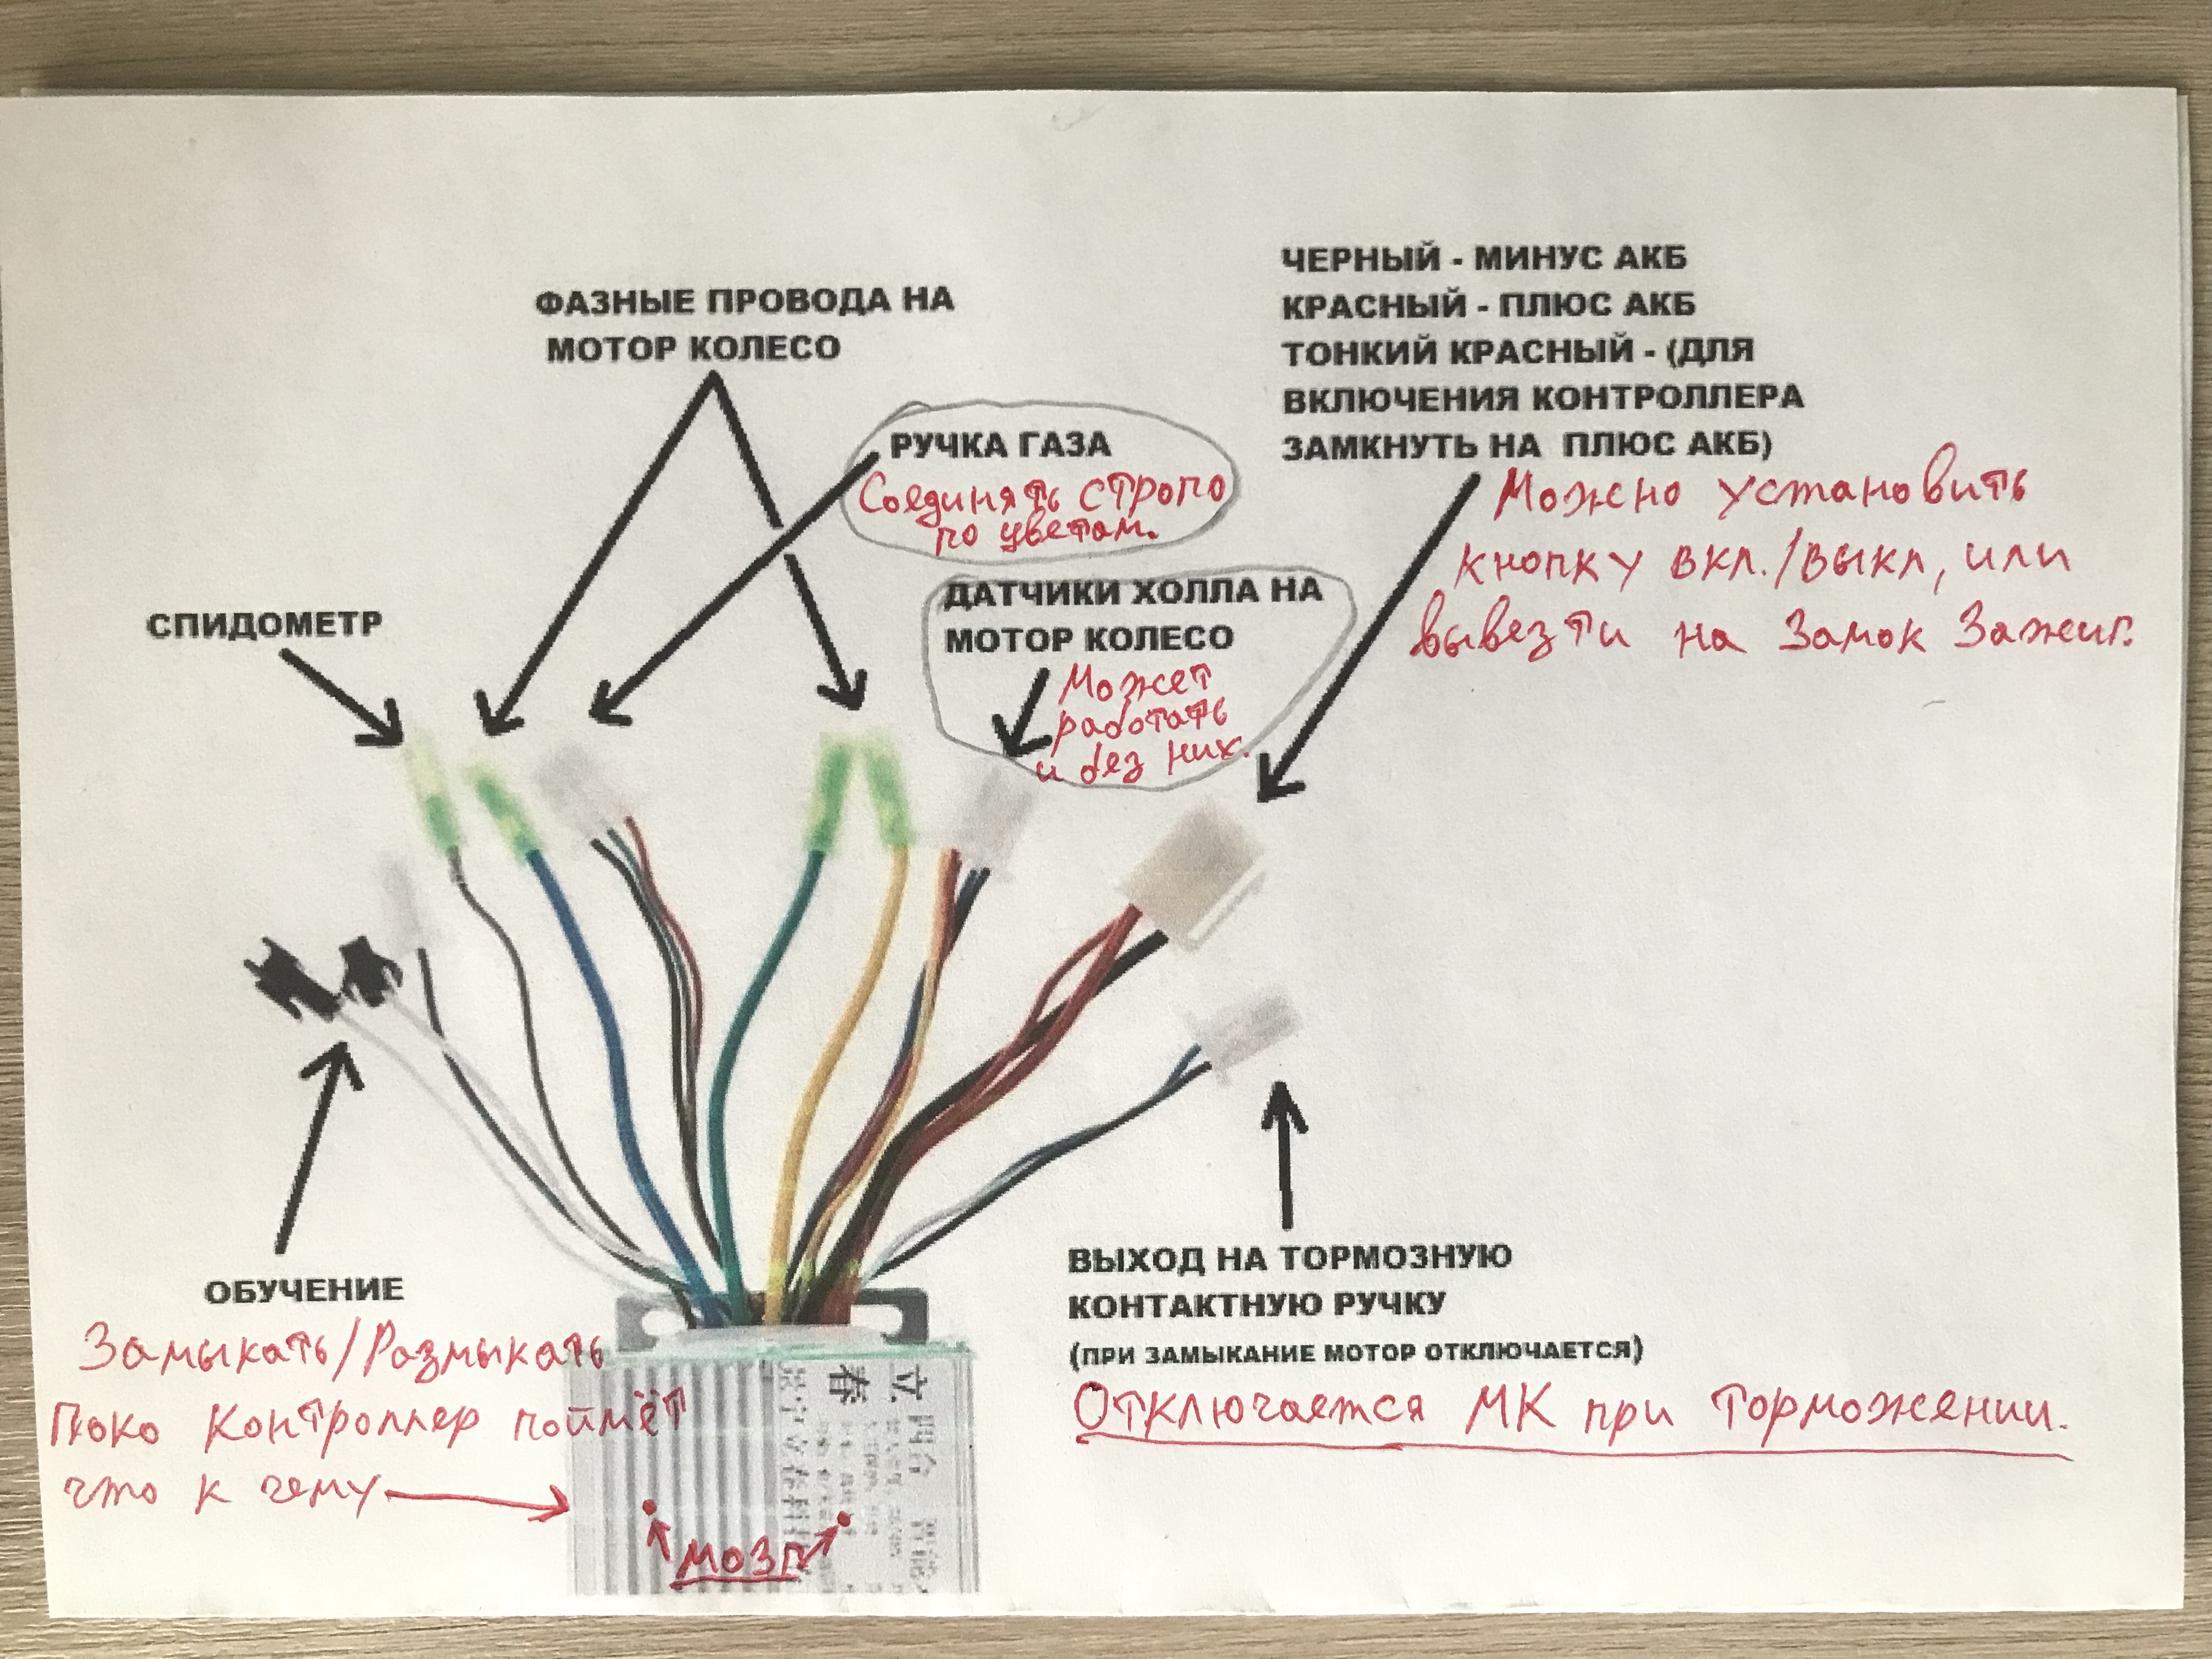 ФАЗНЫЕ ПРОВОДА НА
МОТОР КОЛЕСО
РУЧКА ГАЗА
Соединять строго
по цветам.
ДАТЧИКИ ХОЛЛА НА
МОТОР КОЛЕСО
Может
работать
и без них.
ЧЕРНЫЙ - МИНУС АКБ
КРАСНЫЙ - ПЛЮС АКБ
ТОНКИЙ КРАСНЫЙ - (ДЛЯ
ВКЛЮЧЕНИЯ КОНТРОЛЛЕРА
ЗАМКНУТЬ НА ПЛЮС АКБ)
Можно установить
кнопку вкл./выкл, или
вывезти на Замок Зажиг.
СПИДОМЕТР
ОБУЧЕНИЕ
Замыкать/Размыкать
Пока Контроллер поймёт
что к чему
МОЗГ
立 春
ВЫХОД НА ТОРМОЗНУЮ
КОНТАКТНУЮ РУЧКУ
(ПРИ ЗАМЫКАНИЕ МОТОР ОТКЛЮЧАЕТСЯ)
Отключается МК при Торможении.